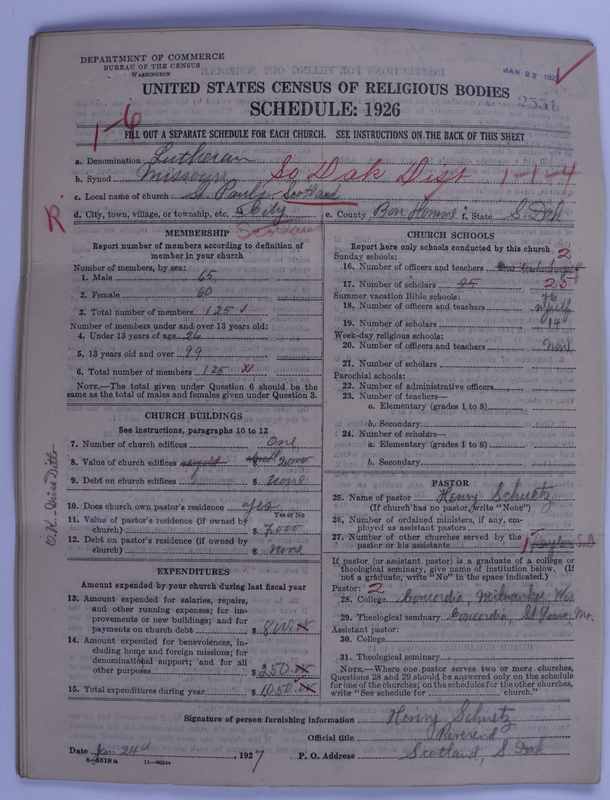 DEPARTMENT OF COMMERCE
BUREAU OF THE CENSUS
WASHINGTON
JAN 28 192
UNITED STATES CENSUS OF RELIGIOUS BODIES
SCHEDULE: 1926
1-6
FILL OUT A SEPARATE SCHEDULE FOR EACH CHURCH. SEE INSTRUCTIONS ON THE BACK OF THIS SHEET
a. Denomination Lutheran
b. Synod Missouri So Dak Dist 1-1-4
c. Local name of church St Pauls, Scotland
d. City, town, village, or township, etc. City e. County Bon Homme f. State S. Dak
R Scotland
MEMBERSHIP
Report number of members according to definition of member in your church
Number of members, by sex:
1. Male 65
2. Female 60
3. Total number of members 125
Number of members under and over 13 years old:
4. Under 13 years of age 26
5. 13 years old and over 99
6. Total number of members 125
NOTE.—The total given under Question 6 should be the same as the total of males and females given under Question 3.
CHURCH BUILDINGS
See instructions, paragraphs 10 to 12
7. Number of church edifices One
8. Value of church edifices $
9. Debt on church edifices $ none
10. Does church own pastor's residence yes
Yes or No
11. Value of pastor's residence (if owned by church) $ 7,000
12. Debt on pastor's residence (if owned by church) $ none
EXPENDITURES
Amount expended by your church during last fiscal year
13. Amount expended for salaries, repairs, and other running expenses; for improvements or new buildings; and for payments on church debt $ 800
14. Amount expended for benevolences, including home and foreign missions; for denominational support; and for all other purposes $ 250
15. Total expenditures during year $ 1050
CHURCH SCHOOLS
Report here only schools conducted by this church
Sunday schools: 2
16. Number of officers and teachers
17. Number of scholars 25 25
Summer vacation Bible schools:
18. Number of officers and teachers myself
19. Number of scholars 14
Week-day religious schools:
20. Number of officers and teachers None
21. Number of scholars
Parochial schools:
22. Number of administrative officers
23. Number of teachers—
a. Elementary (grades 1 to 8)
b. Secondary
24. Number of scholars—
a. Elementary (grades 1 to 8)
b. Secondary
PASTOR
25. Name of pastor Henry Schuetz
(If church has no pastor, write "None")
26. Number of ordained ministers, if any, employed as assistant pastors
27. Number of other churches served by the pastor or his assistants 1
If pastor (or assistant pastor) is a graduate of a college or theological seminary, give name of institution below. (If not a graduate, write "No" in the space indicated.)
Pastor: 2
28. College Concordia, Milwaukee, Wis
29. Theological seminary Concordia, St Louis, Mo.
Assistant pastor:
30. College
31. Theological seminary
NOTE.—Where one pastor serves two or more churches, Questions 28 and 29 should be answered only on the schedule for one of the churches; on the schedules for the other churches, write "See schedule for church."
Signature of person furnishing information Henry Schuetz
Official title Reverend
Date Jan 24th, 1927 P. O. Address Scotland, S. Dak
8-5518 a 11-9034a